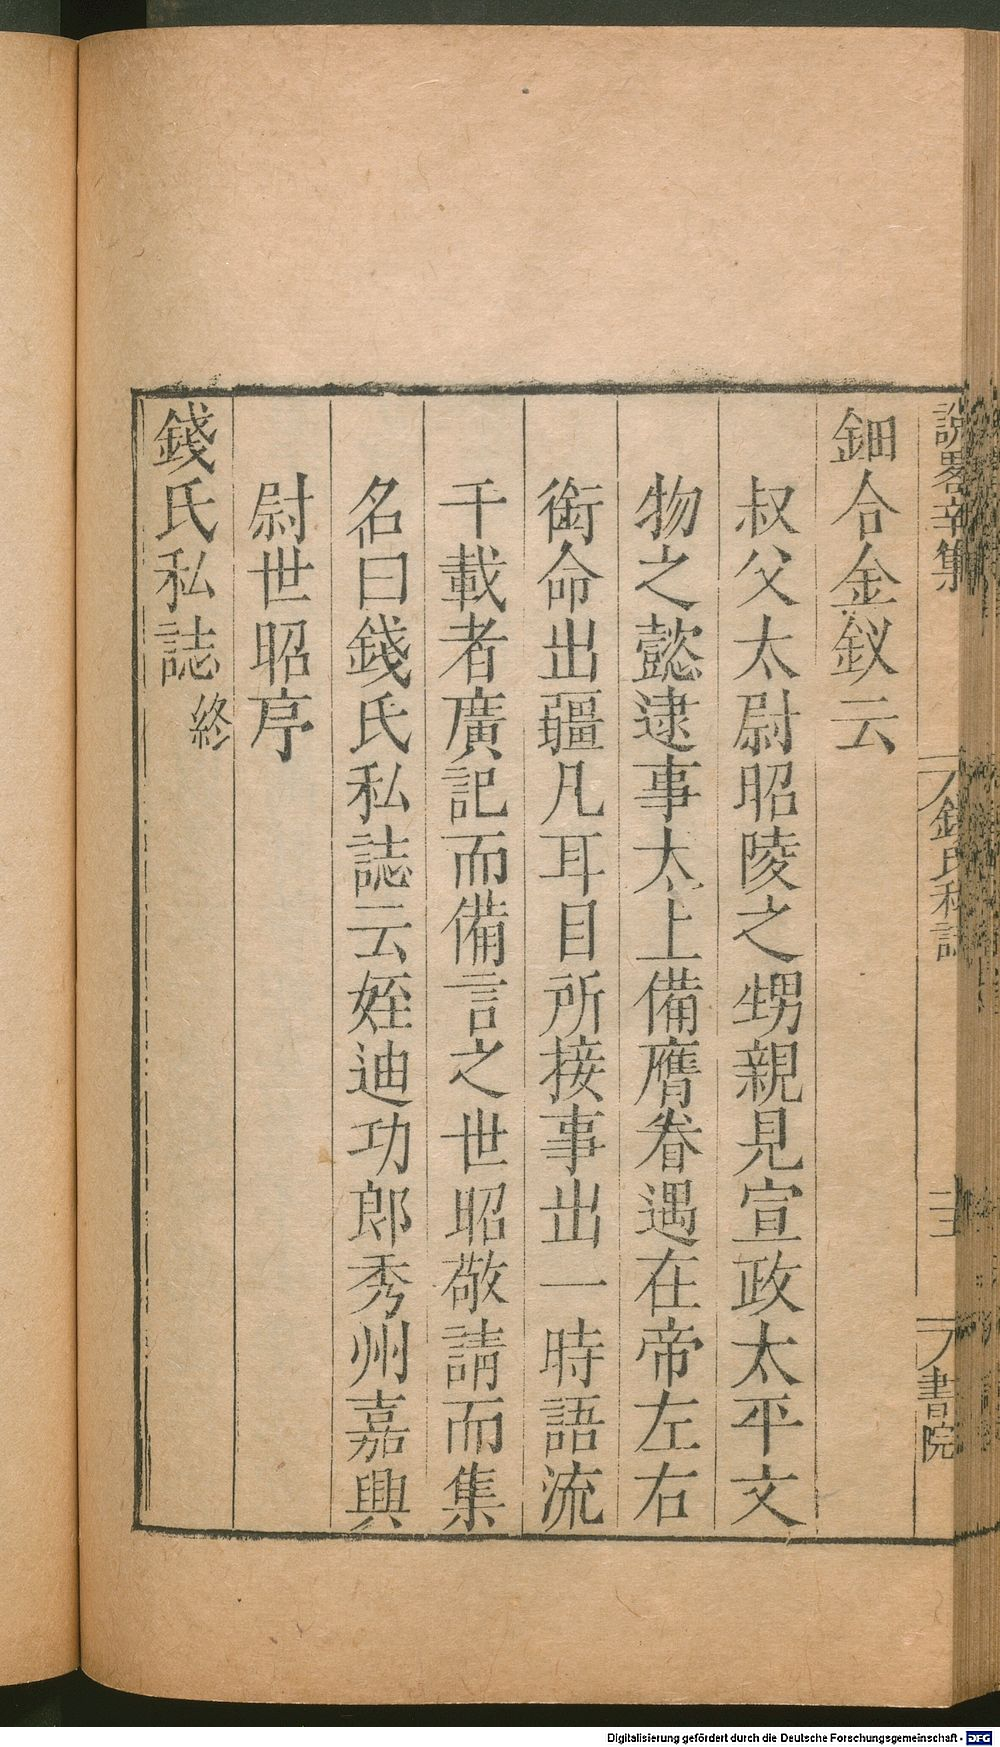 說畧辛集
錢氏私誌
書院
鈿合金釵云
叔父太尉昭陵之甥親見宣政太平文
物之懿逮事太上備膺眷遇在帝左右
銜命出疆凡耳目所接事出一時語流
千載者廣記而備言之世昭敬請而集
名曰錢氏私誌云姪迪功郎秀州嘉興
尉世昭序
錢氏私誌終
Digitalisierung gefördert durch die Deutsche Forschungsgemeinschaft - DFG